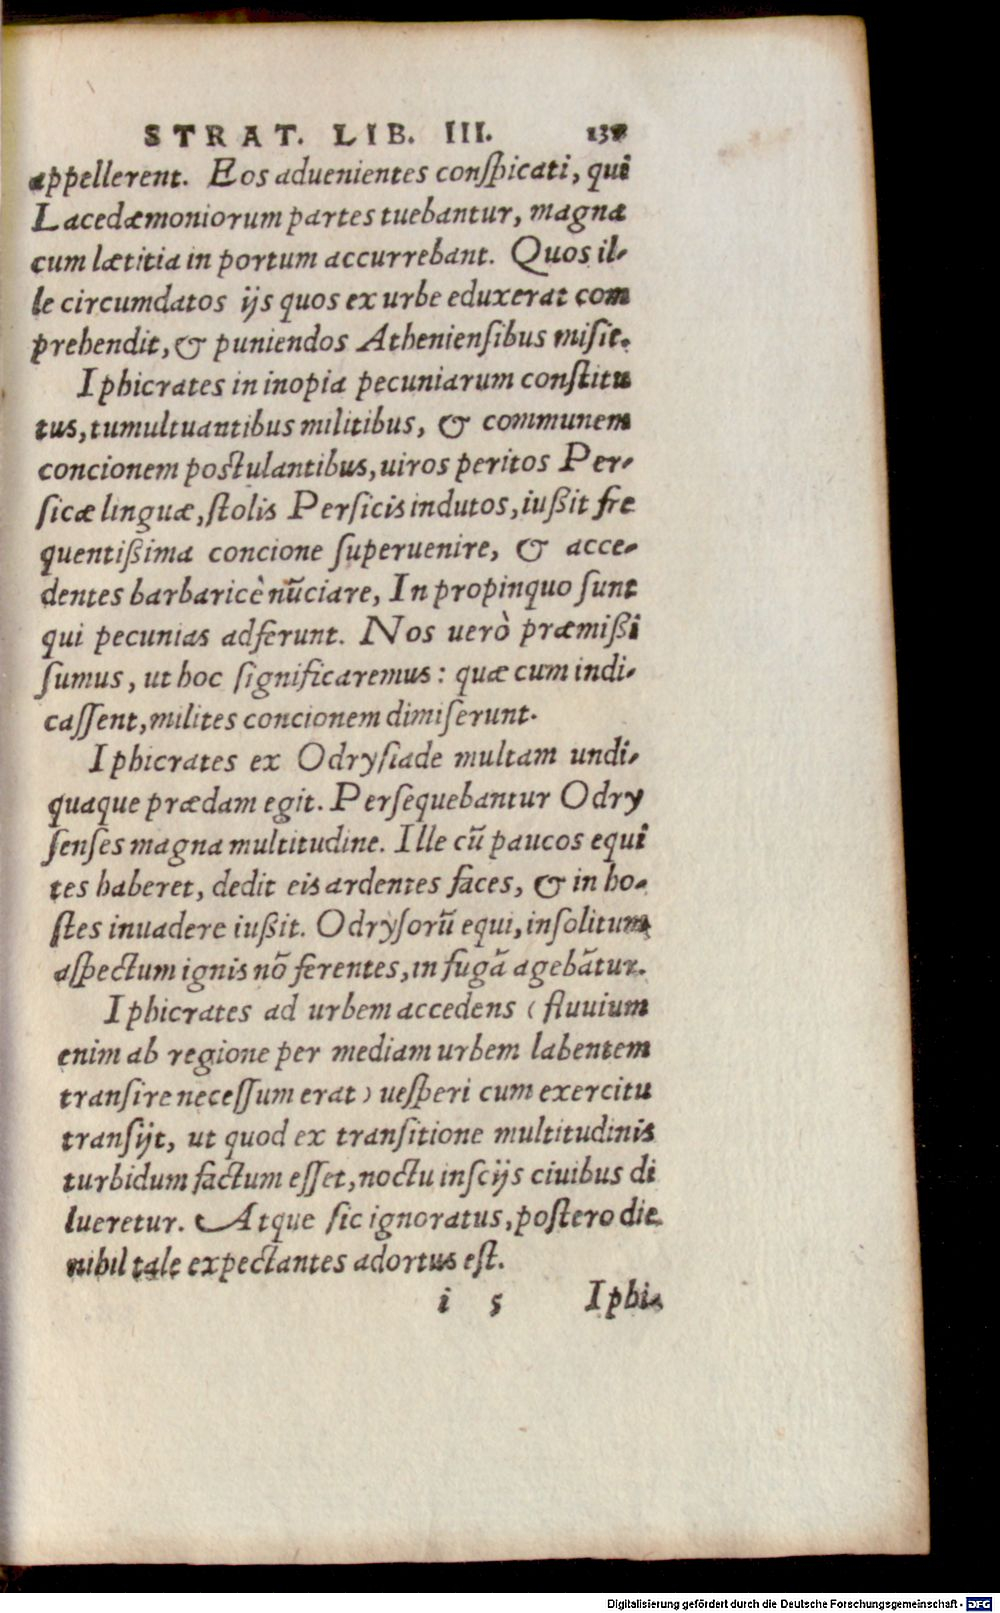 STRAT. LIB. III.
appellerent. Eos aduenientes conſpicati, qui
Lacedæmoniorum partes tuebantur, magna
cum lætitia in portum accurrebant. Quos il-
le circumdatos ijs quos ex urbe eduxerat com
prehendit, & puniendos Athenienſibus miſit.
Iphicrates in inopia pecuniarum conſtitu
tus, tumultuantibus militibus, & communem
concionem poſtulantibus, uiros peritos Per-
ſicæ linguæ, ſtolis Perſicis indutos, iußit fre
quentißima concione ſuperuenire, & acce-
dentes barbaricè nūciare, In propinquo ſunt
qui pecunias adferunt. Nos uerò præmißi
ſumus, ut hoc ſignificaremus: quæ cum indi-
caſſent, milites concionem dimiſerunt.
Iphicrates ex Odryſiade multam undi-
quaque prædam egit. Perſequebantur Odry
ſenſes magna multitudine. Ille cū paucos equi
tes haberet, dedit eis ardentes faces, & in ho-
ſtes inuadere iußit. Odryſorū equi, inſolitum
aſpectum ignis nō ferentes, in fugā agebātur.
Iphicrates ad urbem accedens (fluuium
enim ab regione per mediam urbem labentem
tranſire neceſſum erat) ueſperi cum exercitu
tranſijt, ut quod ex tranſitione multitudinis
turbidum factum eſſet, noctu inſcijs ciuibus di
lueretur. Atque ſic ignoratus, poſtero die
nihil tale expectantes adortus eſt.
i 5 Iphi-
Digitalisierung gefördert durch die Deutsche Forschungsgemeinschaft - DFG